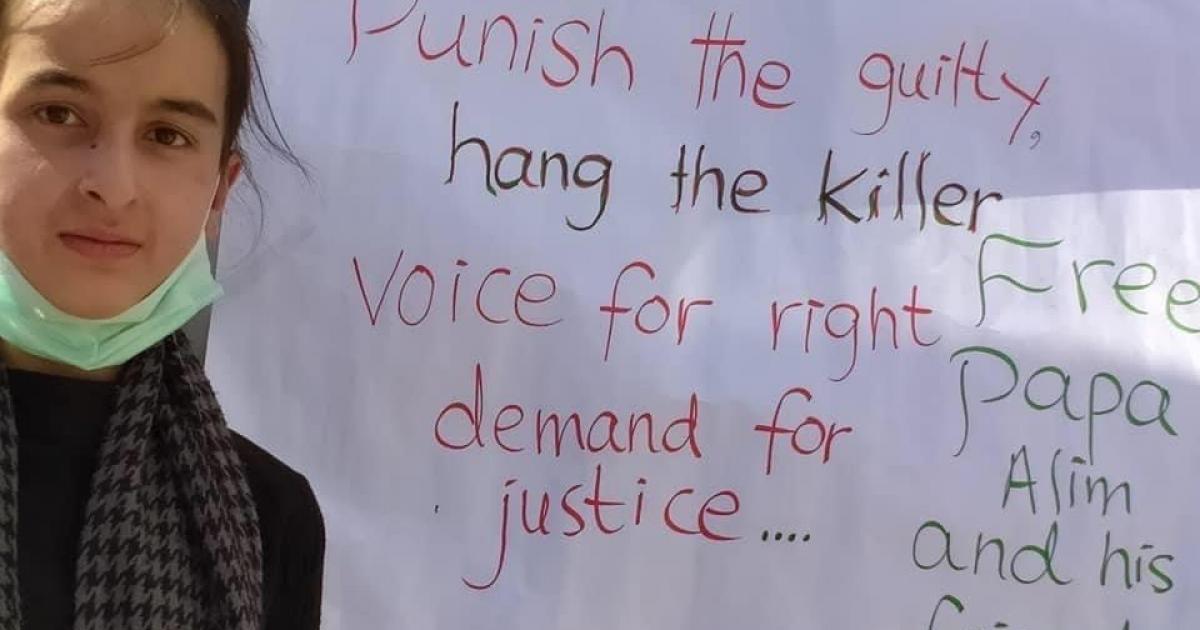 Punish the guilty,
hang the killer
Voice for right
demand for
justice....
Free
Papa
Alim
and his